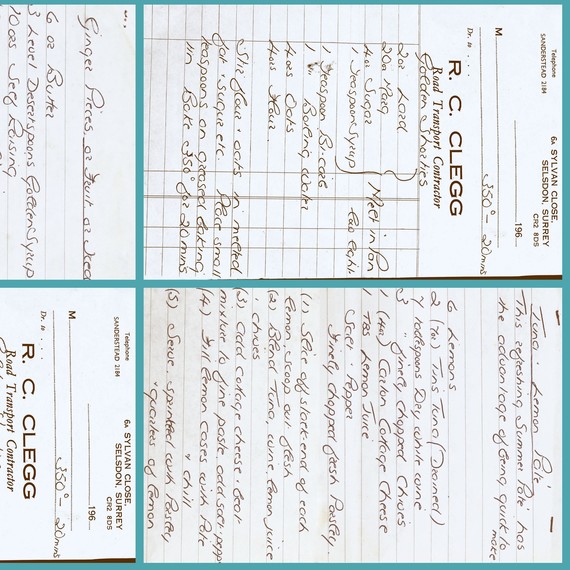 Ginger Pieces or Fruit or Seed
6 oz Butter
3 Level Dessertspoons Golden Syrup
10 ozs Self Raising
Telephone
SANDERSTEAD 2184
6A SYLVAN CLOSE,
SELSDON, SURREY
CR2 8DS
196
M
350° - 20 mins
Dr. to
R. C. CLEGG
Road Transport Contractor
Golden Shorties
2 oz Lard
2 oz Marg
4 oz Sugar
1 Teaspoon Syrup
Melt in Pan
too light
1 Teaspoon B-carb
1 " Boiling water
4 ozs Oats
4 ozs Flour
Stir flour + oats in melted
fat + sugar etc. Place small
teaspoons on greased baking
tin Bake 350° for 20 mins
Telephone
SANDERSTEAD 2184
6A SYLVAN CLOSE,
SELSDON, SURREY
CR2 8DS
196
M
350° - 20 mins
Dr. to
R. C. CLEGG
Road Transport Contractor
Tuna - Lemon Pate
This refreshing Summer Pate has
the advantage of being quick to
make
6 Lemons
2 (7oz) Tins Tuna (Drained)
4 Tablespoons Dry white wine
3 " finely chopped Chives
1 (4oz) Carton Cottage Cheese
1 Tbs Lemon Juice
Salt & Pepper
Finely chopped fresh Parsley
(1) Slice off stalk end of each
lemon. scoop out flesh
(2) Blend Tuna, wine, lemon juice
& chives
(3) Add cottage cheese. Beat
mixture to fine paste. add salt & pepper
(4) Fill lemon cases with Pate
& chill
(5) Serve, sprinkled with Parsley
& quarters of lemon